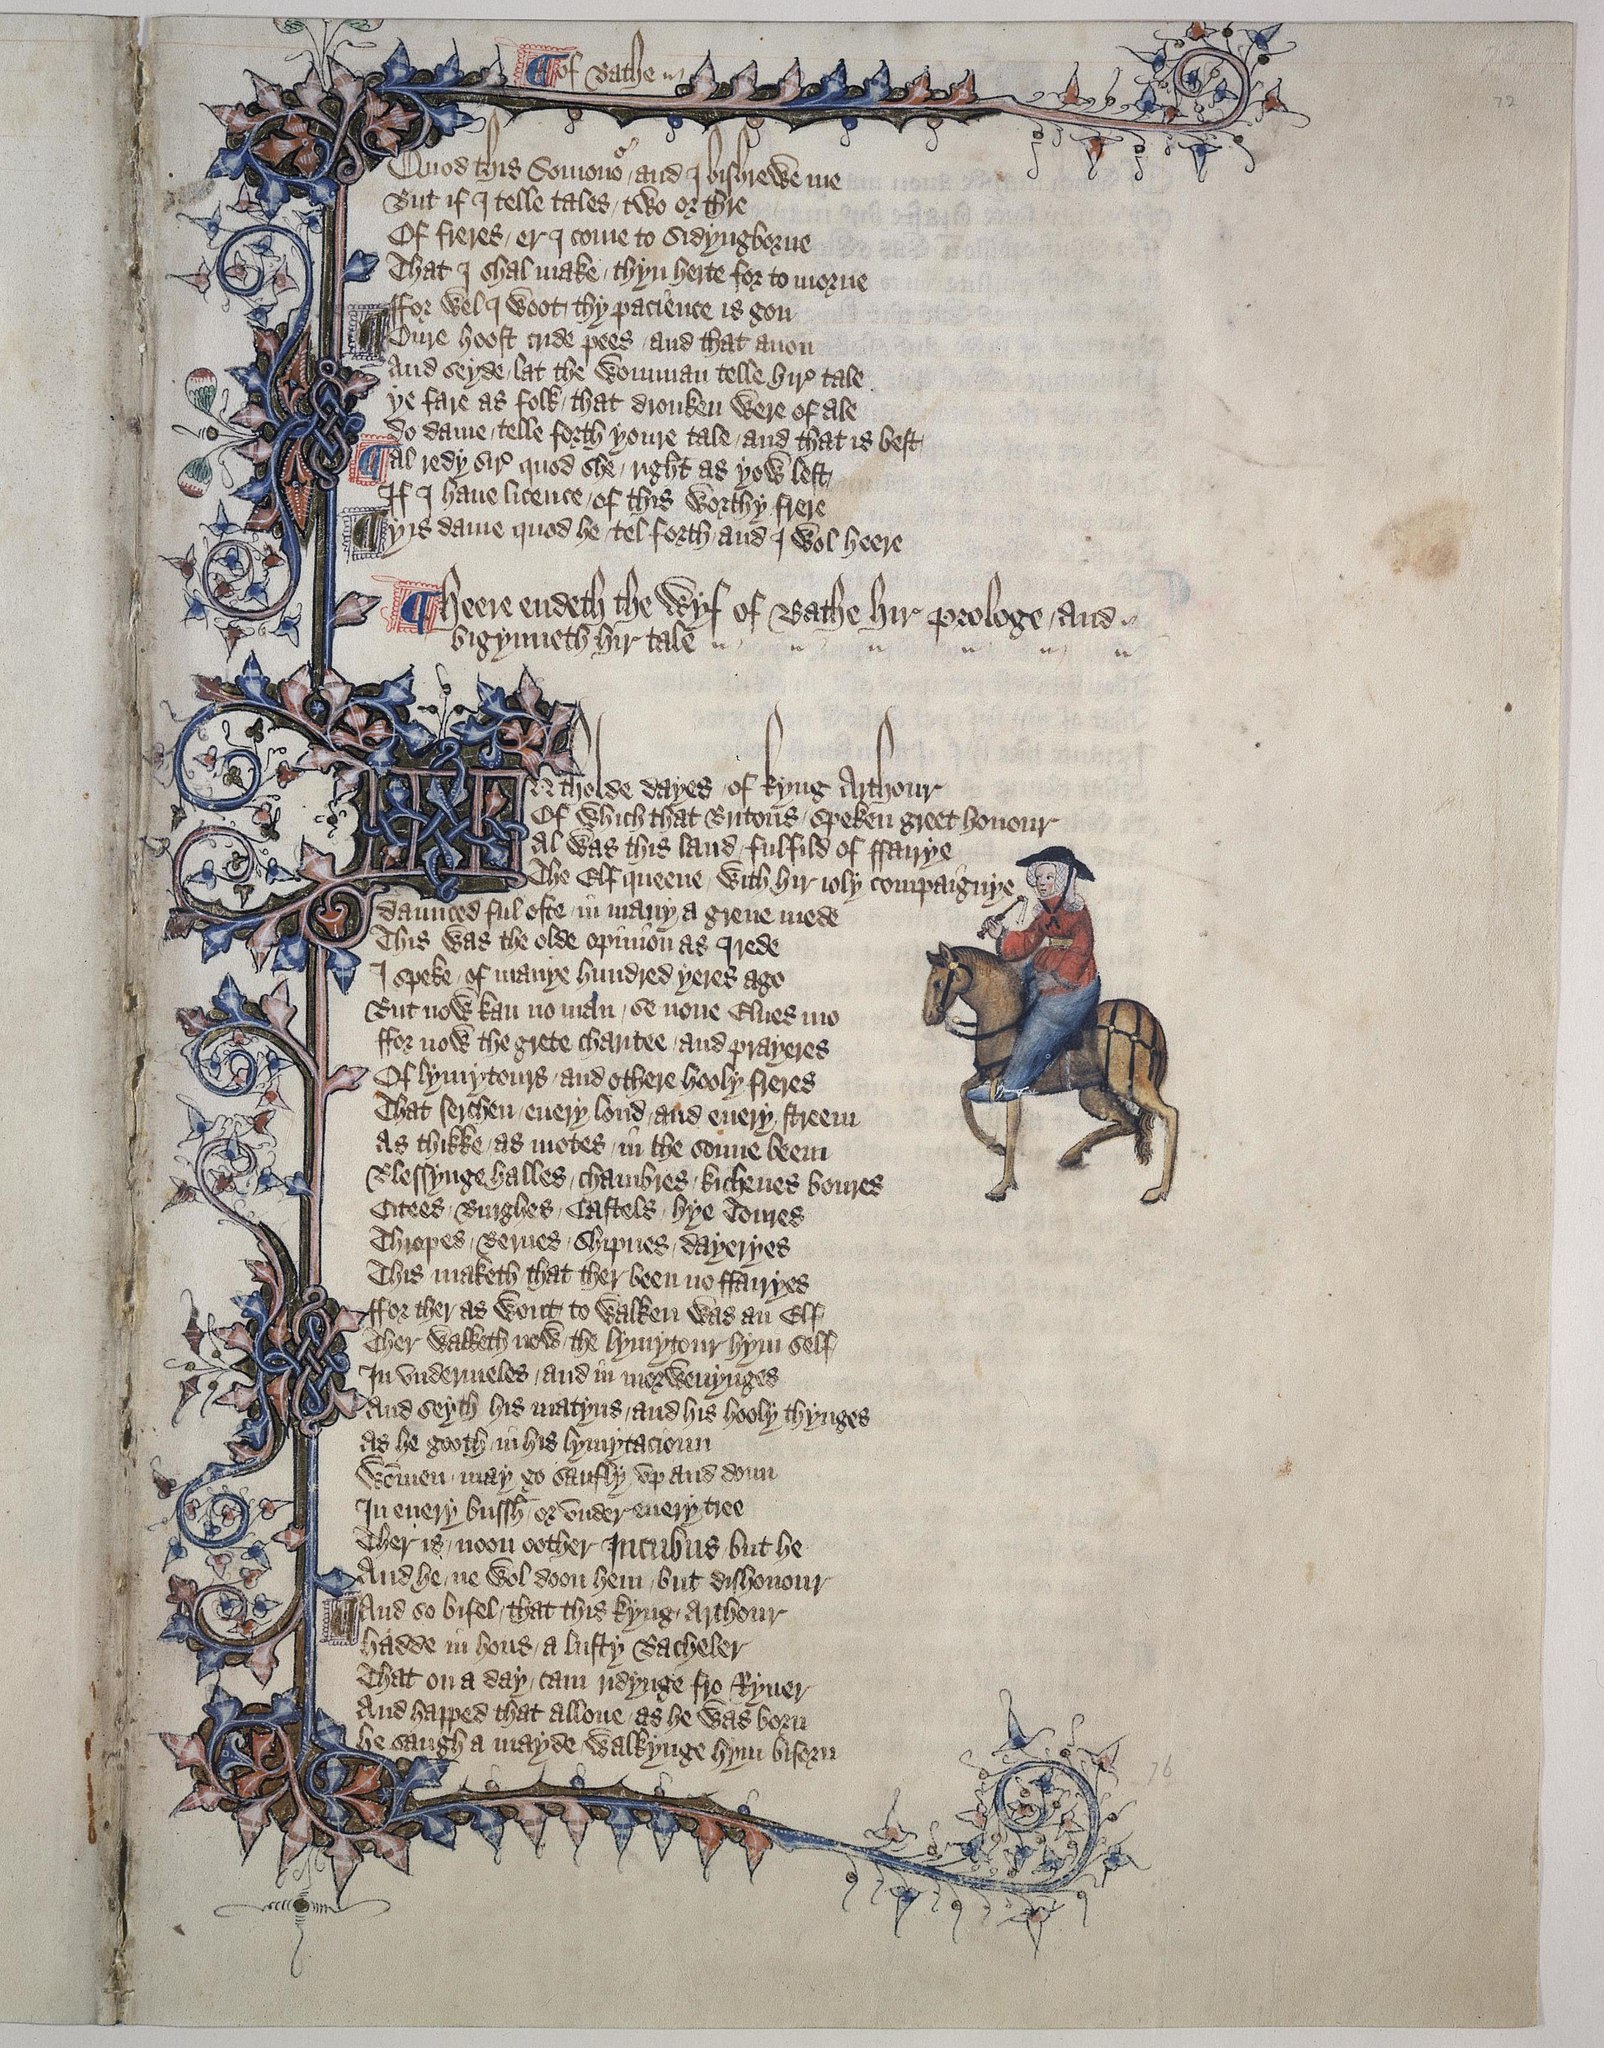 Of Bathe
Quod this Somonor and I bishrewe me
But if I telle tales two or thre
Of freres er I come to Sidyngborne
That I shal make thyn herte for to morne
ffor wel I woot thy pacience is gon
Oure hoost cride pees and that anon
And seyde lat the womman telle hir tale
ye fare as folk that dronken were of ale
do dame telle forth youre tale and that is best
Al redy sir quod she right as yow lest
If I haue licence of this worthy frere
yis dame quod he tel forth and I wol heere
Heere endeth the Wyf of Bathe hir prologe and
bigynneth hir tale
In tholde dayes of kyng Arthour
Of which that Britons speken greet honour
Al was this land fulfild of ffairye
The Elf queene with hir ioly compaignye
daunced ful ofte in many a grene mede
This was the olde opinion as I rede
I speke of manye hundred yeres ago
But now kan no man se none Elues mo
ffor now the grete charitee and prayeres
Of lymytours and othere hooly freres
That serchen euery lond and euery streem
As thikke as motes in the sonne beem
Blessynge halles chambres kichenes boures
Citees Burghes Castels hye Toures
Thropes Bernes Shipnes dayeryes
This maketh that ther been no ffairyes
ffor ther as wont to walken was an Elf
Ther walketh now the lymytour hym self
In vndermeles and in morwenynges
And seyth his matyns and his hooly thynges
As he gooth in his lymytacioun
Wommen may go saufly vp and doun
In euery bussh or vnder euery tree
Ther is noon oother Incubus but he
And he ne wol doon hem but dishonour
And so bifel that this kyng Arthour
hadde in hous a lusty Bacheler
That on a day cam ridynge fro Ryuer
And happed that allone as he was born
he saugh a mayde walkynge hym biforn
72
76